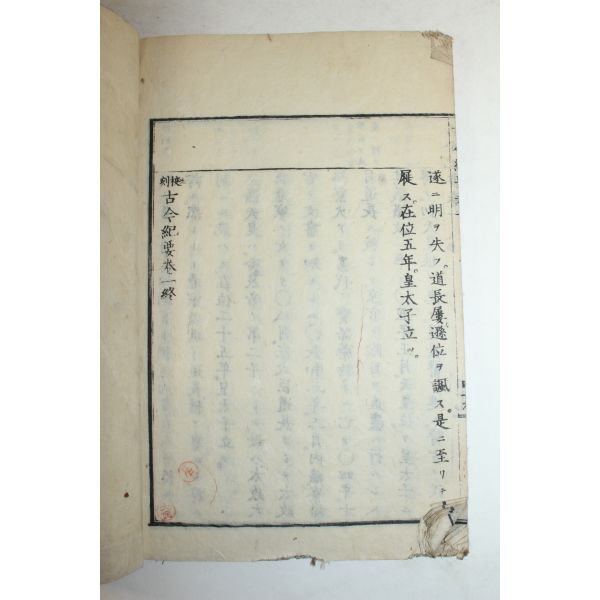 遂ニ明ヲ失フ。道長屢遜位ヲ諷ス。是ニ至リテ
展ス。在位五年。皇太子立ツ。
校刻 古今紀要巻一終